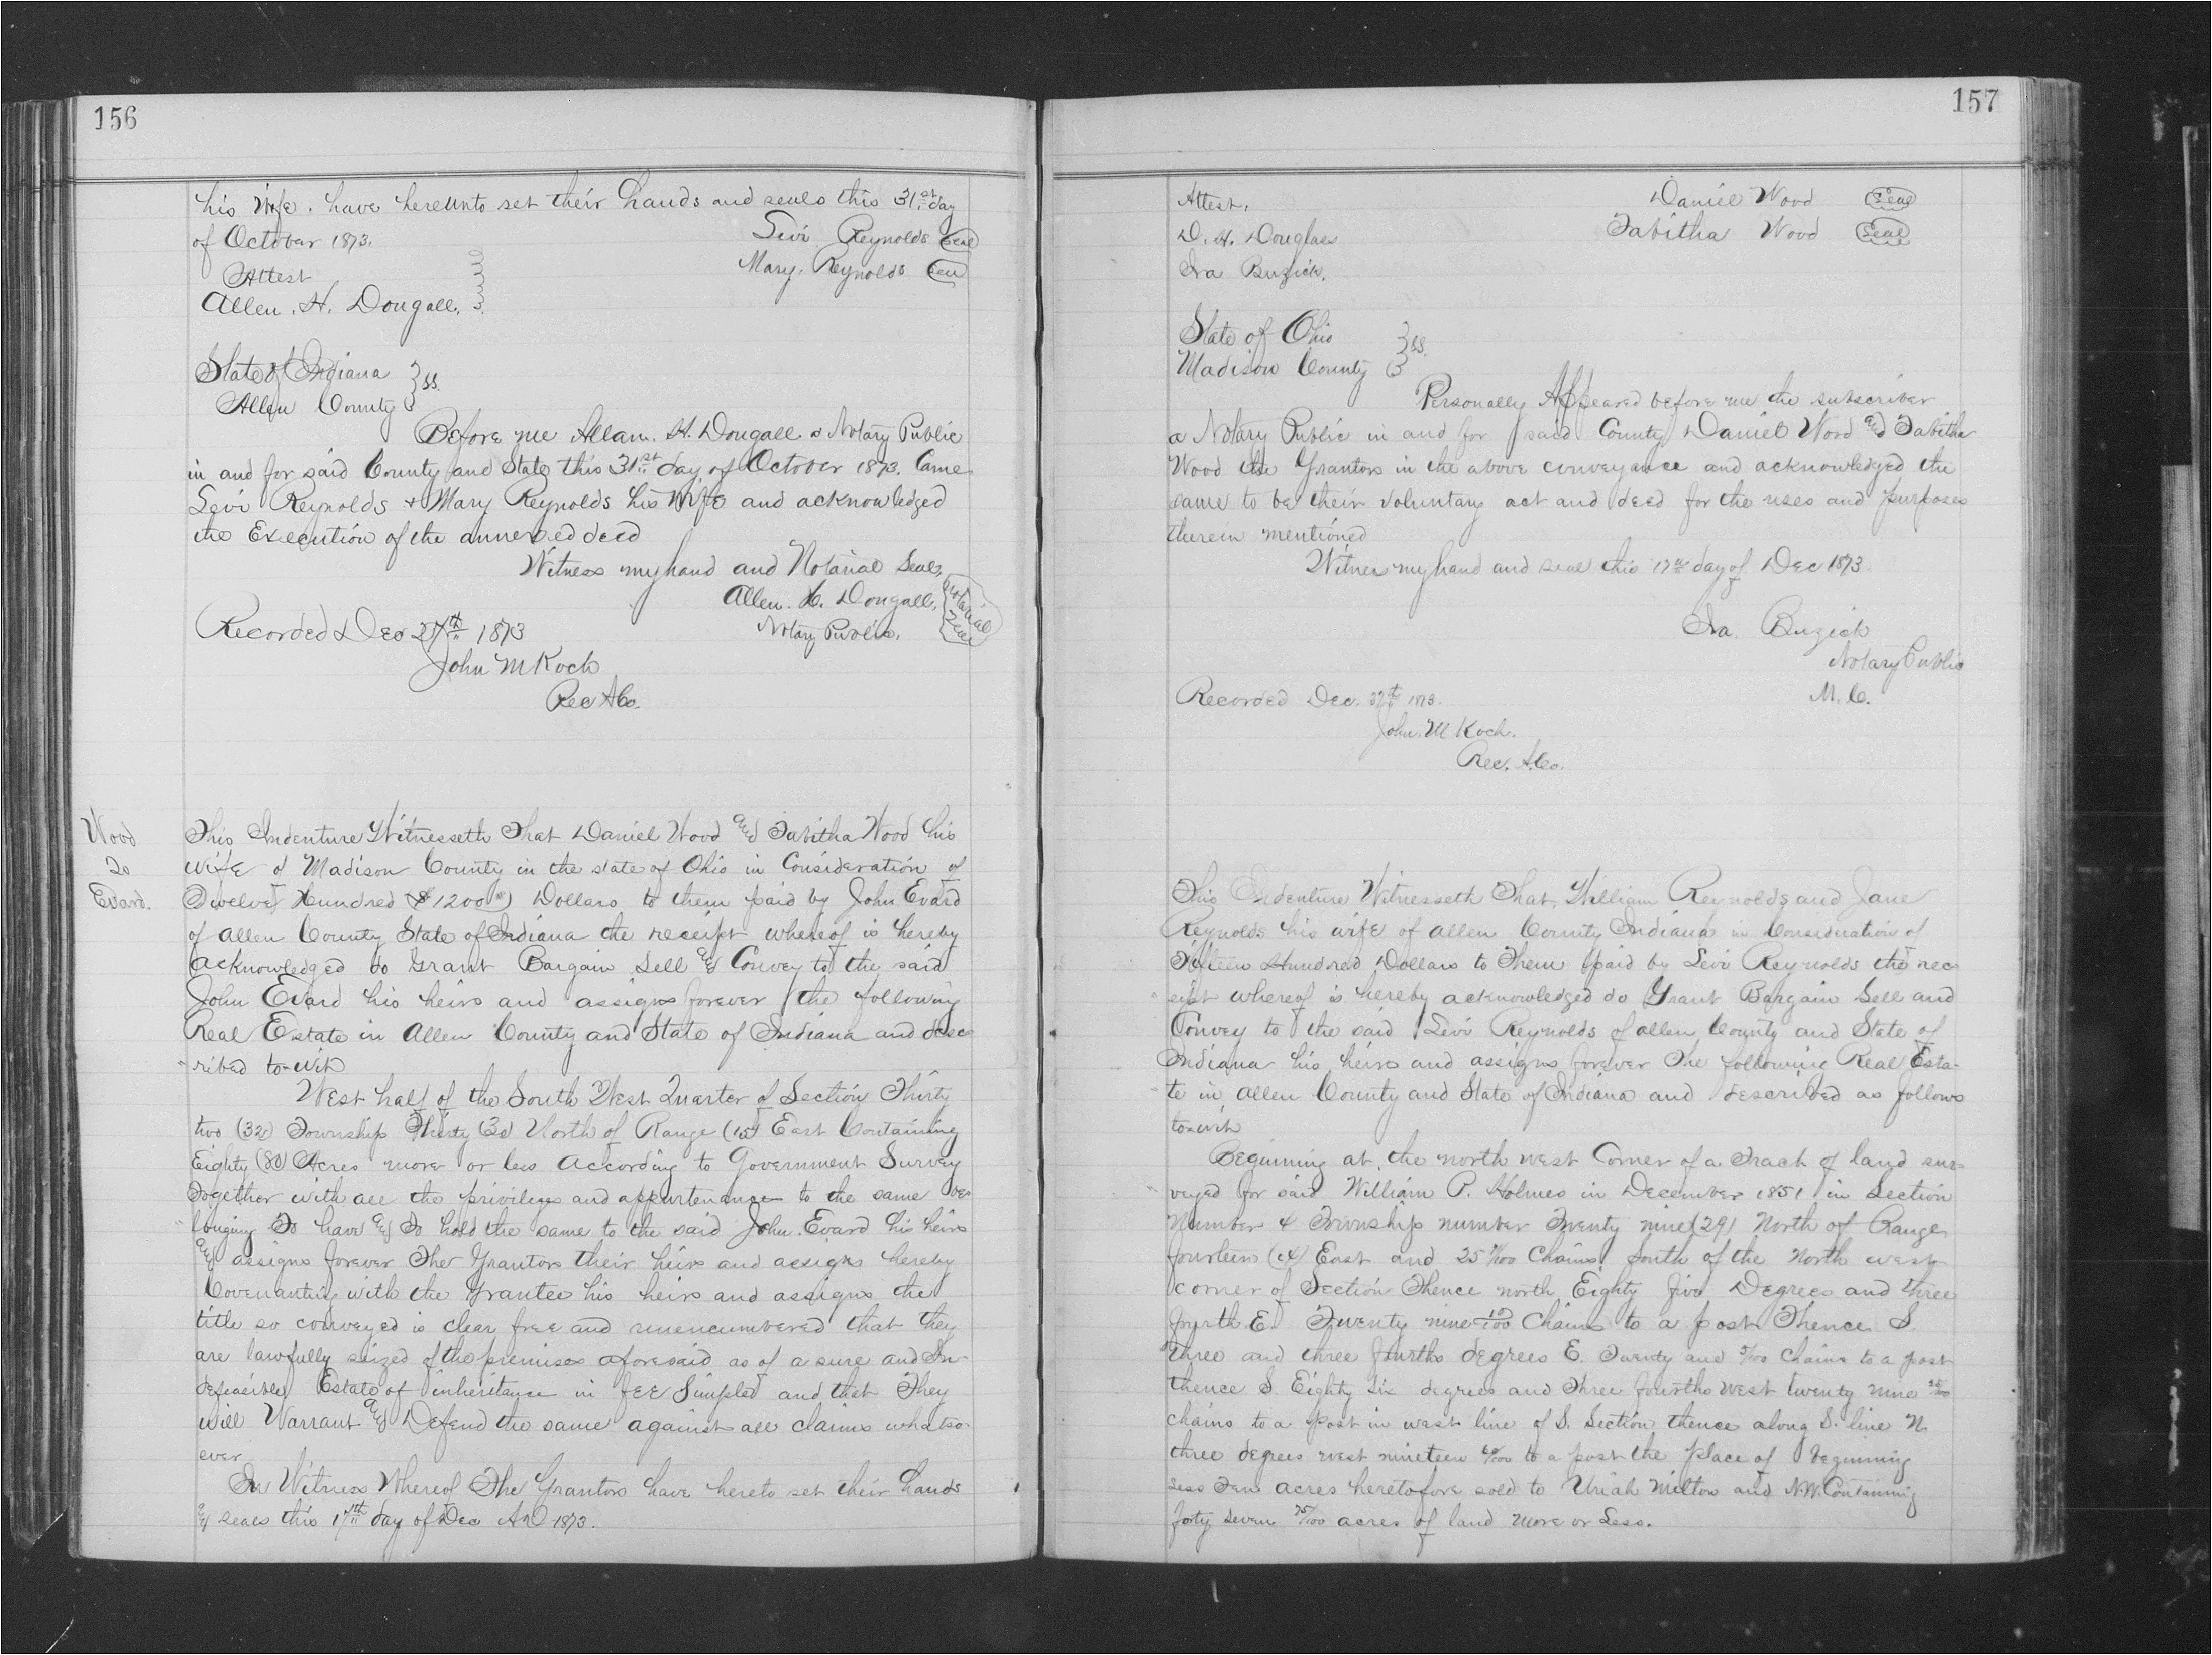 156
his Wife. have hereunto set their hands and seals this 31st day
of October 1873.
Levi Reynolds Seal
Attest
Mary. Reynolds Seal
Allen. H. Dougall.
State of Indiana
Allen County ss.
Before me Allam. H. Dougall a Notary Public
in and for said County and State this 31st day of October 1873. Came
Levi Reynolds + Mary Reynolds his Wife and acknowledged
the Execution of the annexed deed
Witness my hand and Notarial Seal,
Allen. H. Dougall, Notarial Seal
Recorded Dec 27th 1873
Notary Public.
John M Koch
Rec A Co.
Wood
To
Evard.
This Indenture Witnesseth That Daniel Wood and Tabitha Wood his
wife of Madison County in the state of Ohio in Consideration of
Twelve Hundred ($1200) Dollars to them paid by John Evard
of Allen County State of Indiana the receipt whereof is hereby
acknowledged do Grant Bargain Sell and Convey to the said
John Evard his heirs and assigns forever the following
Real Estate in Allen County and State of Indiana and desc
-ribed to-wit
West half of the South West Quarter of Section Thirty
two (32) Township Thirty (30) North of Range (15) East Containing
Eighty (80) Acres more or less according to Government Survey
Together with all the privileges and appurtenances to the same be-
-longing To have and To hold the same to the said John. Evard his heirs
and assigns forever The Grantors their heirs and assigns hereby
Covenanting with the Grantee his heirs and assigns the
title so conveyed is clear free and unencumbered that they
are lawfully seized of the premises aforesaid as of a sure and In-
defeasible Estate of inheritance in fee Simple and that They
will Warrant and Defend the same against all claims whatso-
ever
In Witness Whereof The Grantors have hereto set their hands
and seals this 17th day of Dec AD 1873.
157
Attest,
Daniel Wood Seal
D. H. Douglass
Tabitha Wood Seal
Ira Buzick.
State of Ohio
Madison County ss.
Personally Appeared before me the subscriber
a Notary Public in and for said County Daniel Wood and Tabitha
Wood the Grantors in the above conveyance and acknowledged the
same to be their voluntary act and deed for the uses and purposes
therein mentioned
Witness my hand and seal this 17th day of Dec 1873.
Ira. Buzick
Notary Public
M. C.
Recorded Dec. 27th 1873.
John. M Koch.
Rec. A. Co.
This Indenture Witnesseth That, William Reynolds and Jane
Reynolds his wife of Allen County Indiana in Consideration of
Fifteen Hundred Dollars to Them paid by Levi Reynolds the rec
-eipt whereof is hereby acknowledged do Grant Bargain Sell and
Convey to the said Levi Reynolds of Allen County and State of
Indiana his heirs and assigns forever The following Real Esta-
-te in Allen County and State of Indiana and described as follows
to-wit
Beginning at the north west Corner of a Tract of land sur-
-veyed for said William P. Holmes in December 1851 in Section
Number 4 Township number Twenty nine (29) North of Range
fourteen (14) East and 25 /100 Chains South of the North west
corner of Section Thence north Eighty five Degrees and three
fourth. E. Twenty nine 10/100 Chains to a post Thence S.
three and three fourths degrees E. Twenty and 5/100 Chains to a post
thence S. Eighty Six degrees and three fourths west twenty nine
chains to a post in west line of S. Section thence along S. line N.
three degrees west nineteen 60/100 to a post the place of beginning
Less Ten acres heretofore sold to Uriah Milton and N.W. Containing
forty seven 75/100 acres of land more or Less.